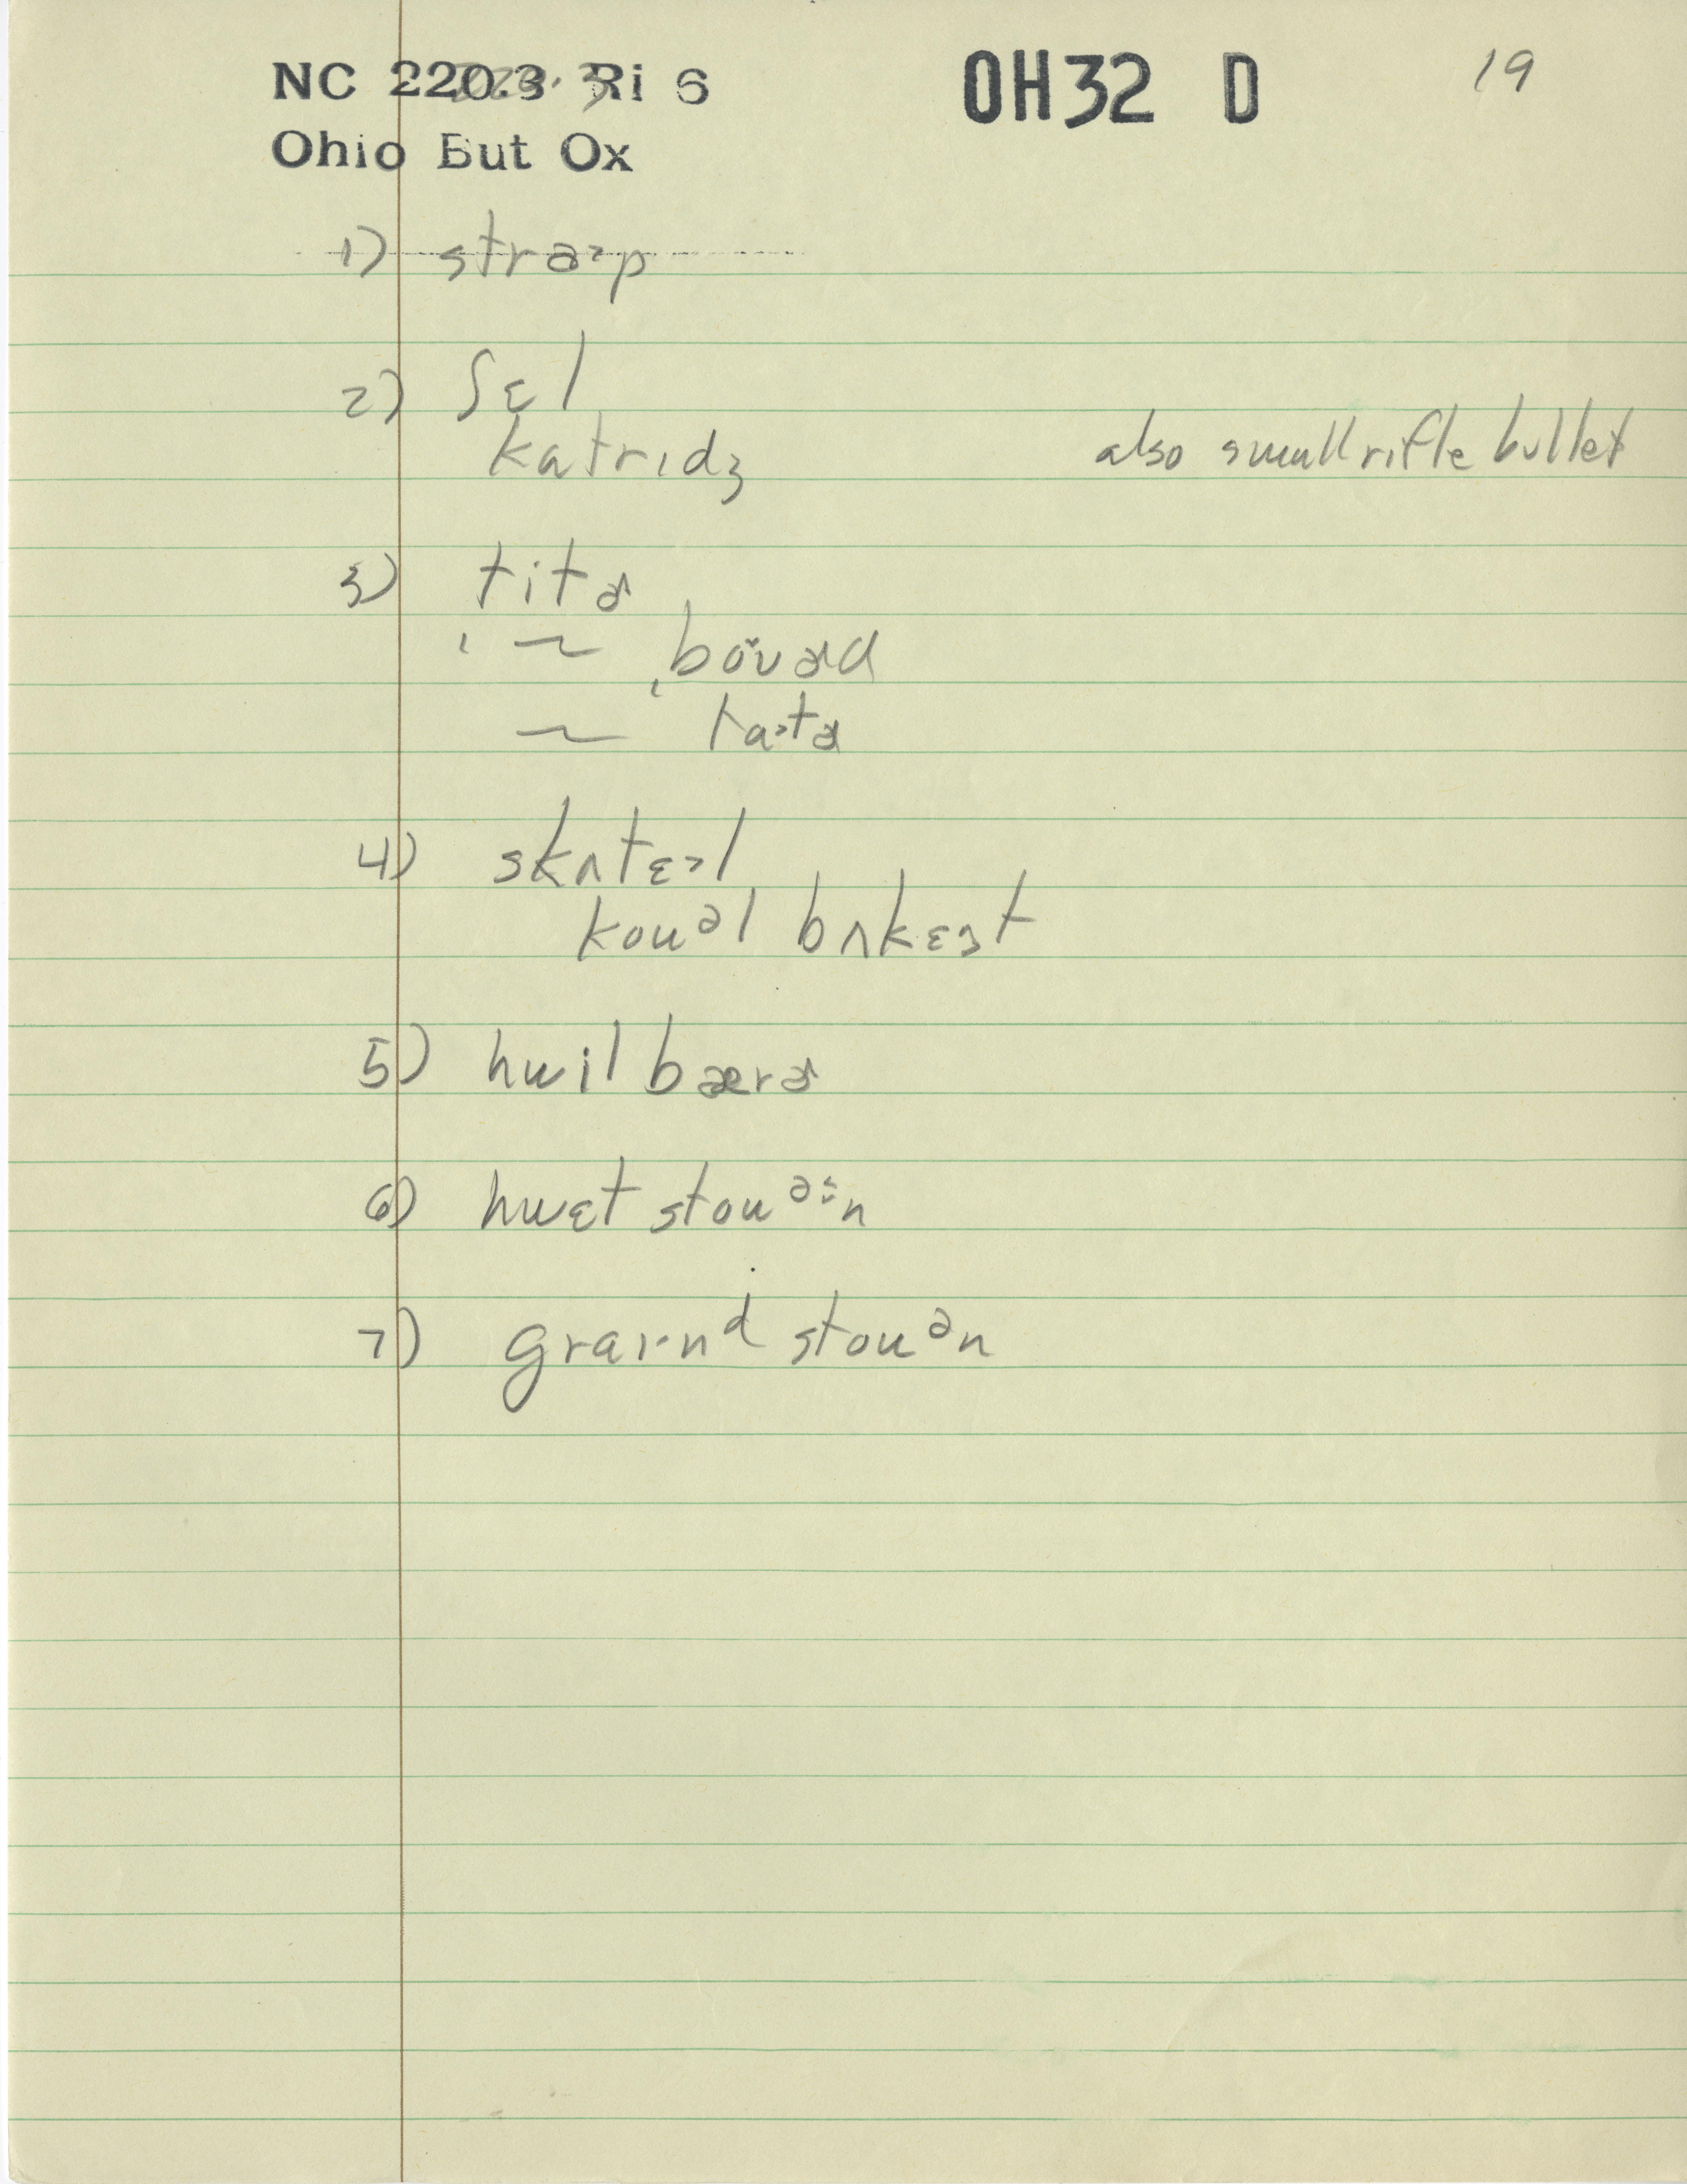 NC 220.3 Ri 6
OH32 D
19
Ohio But Ox
1) straˑp
2) ʃɛl
katrɪdʒ
also small rifle bullet
3) titɚ
ˌ ~ ˌboʊɚd
~ taˑtɚ
4) skʌtɛˑl
kouᵊl bʌkɛˑt
5) hwil bærɚ
6) hwɛt stouᵊːn
7) graɪˑnᵈ stouᵊn